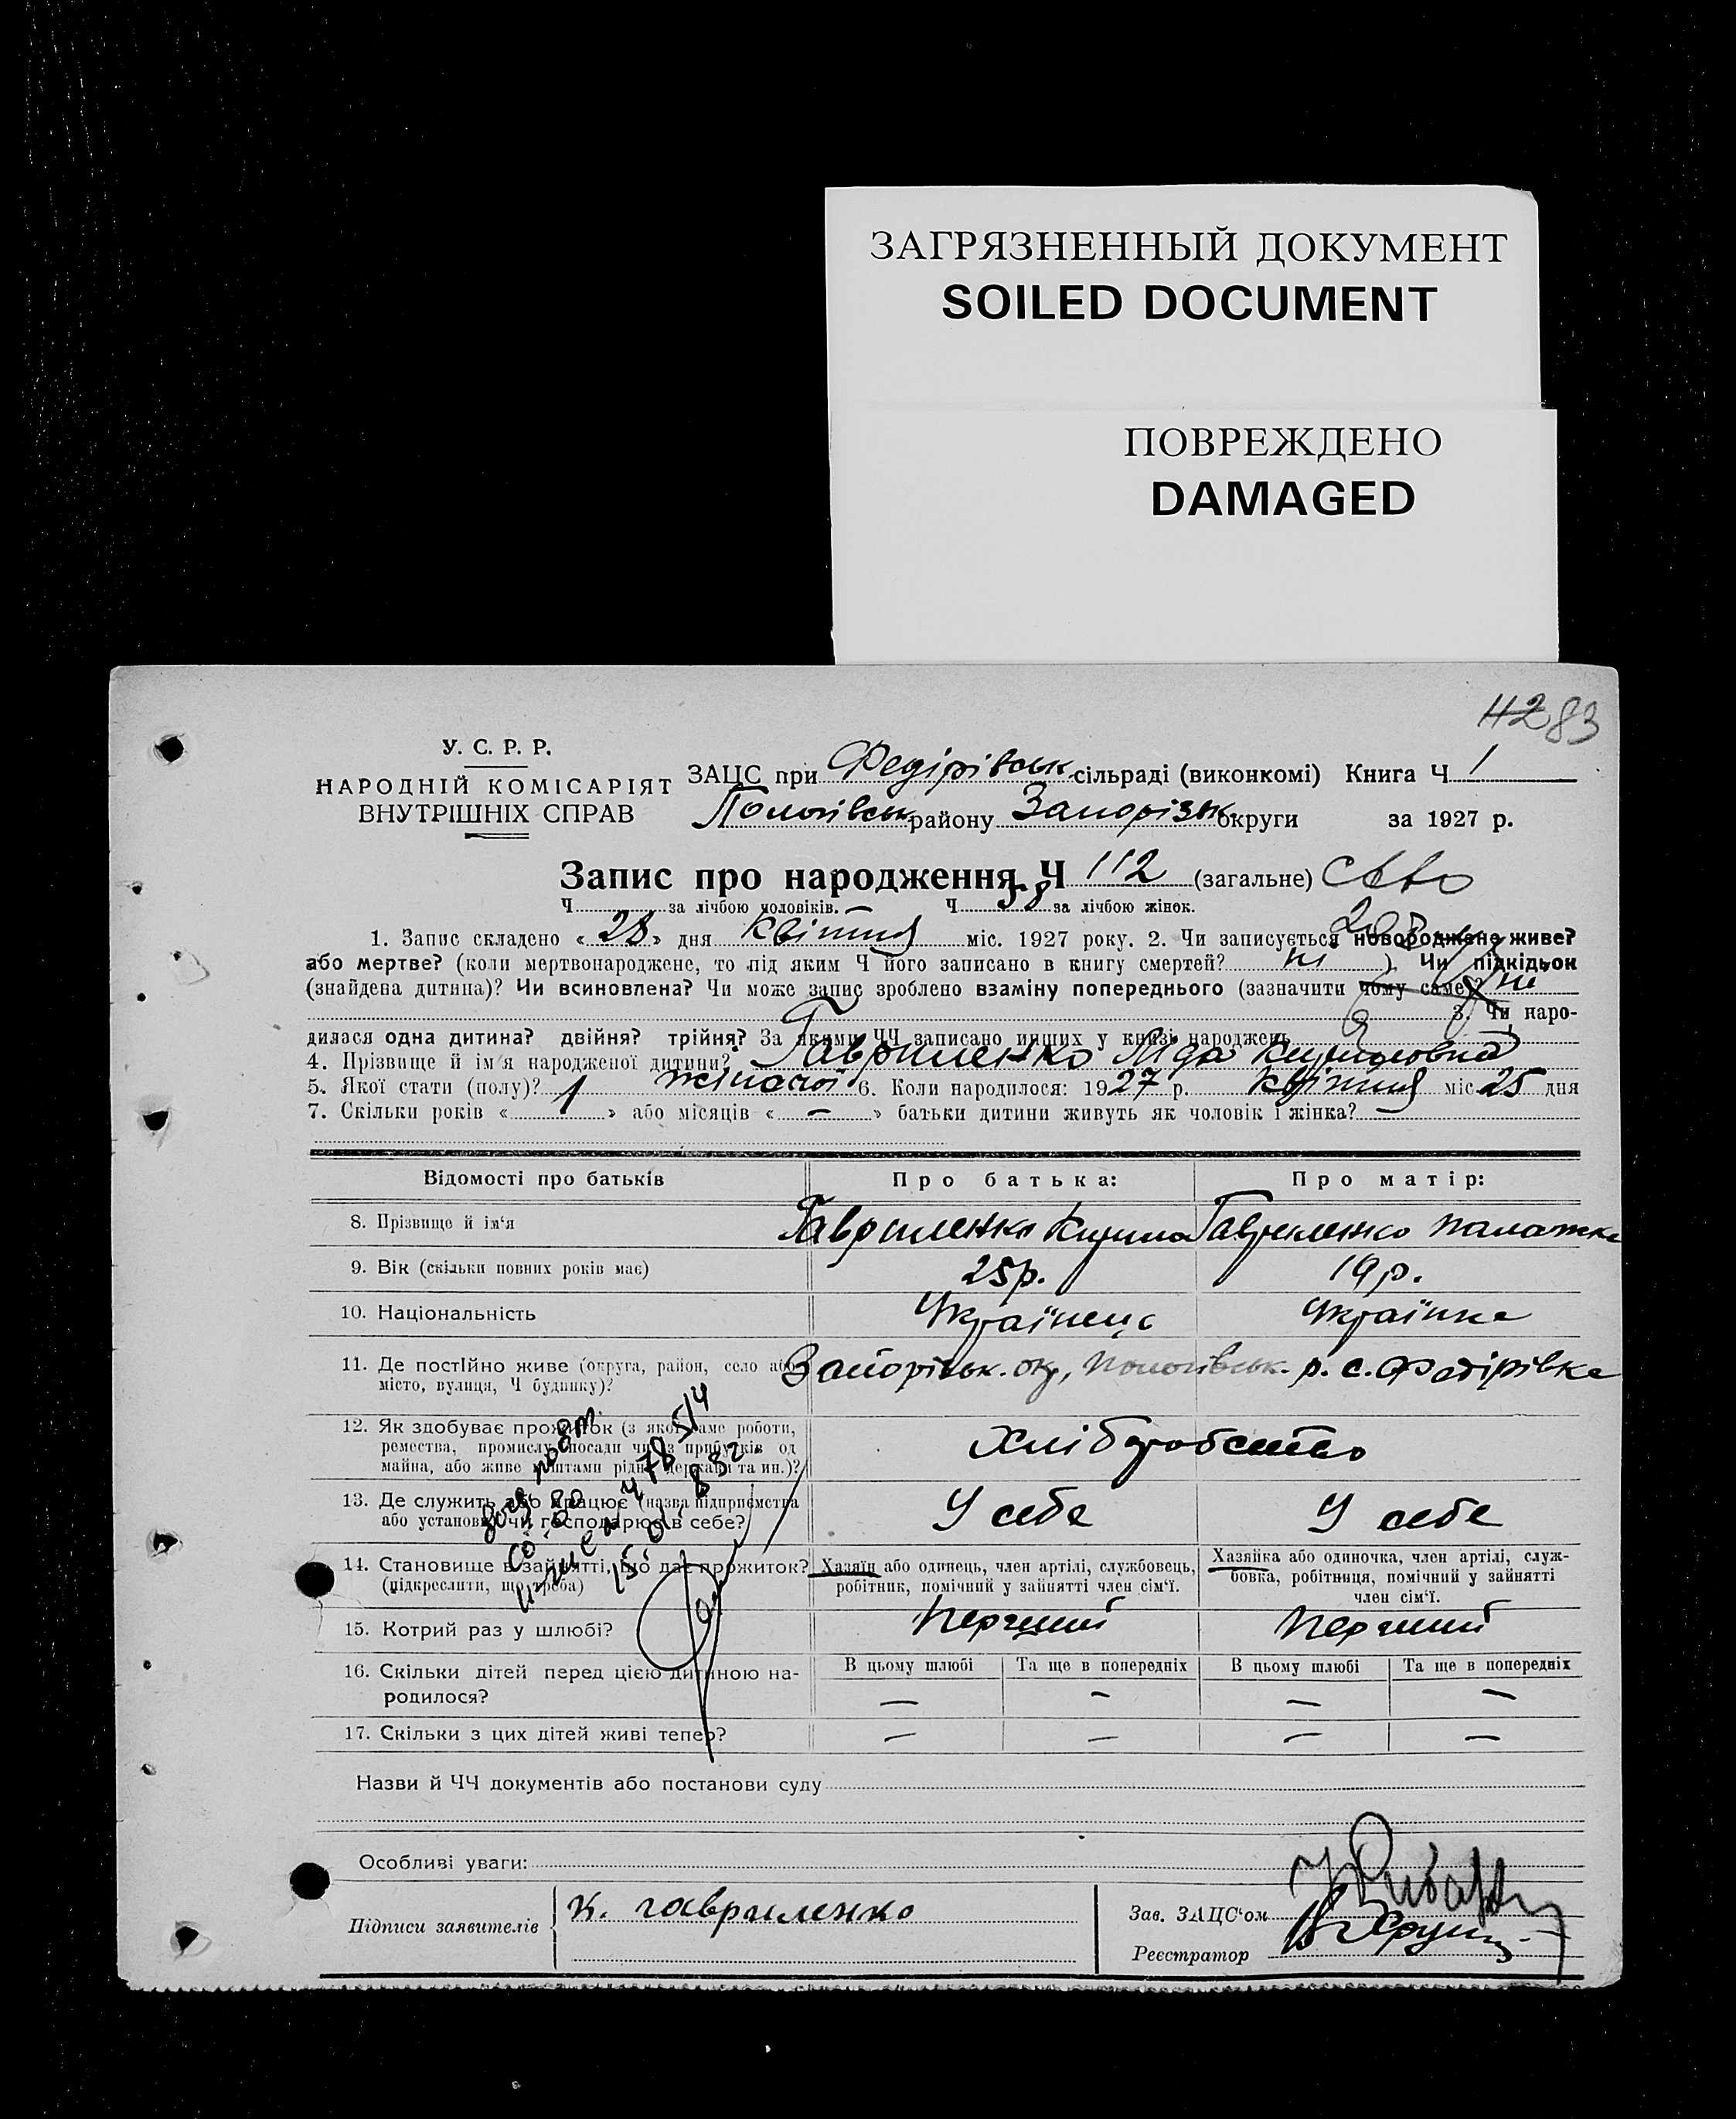 ЗАГРЯЗНЕННЫЙ ДОКУМЕНТ
SOILED DOCUMENT
ПОВРЕЖДЕНО
DAMAGED
42 83
У. С. Р. Р.
НАРОДНІЙ КОМІСАРІЯТ
ВНУТРІШНІХ СПРАВ
ЗАЦС при Федірівськ сільраді (виконкомі) Книга Ч 1
Пологівськ району Запорізьк округи за 1927 р.
Запис про народження Ч 112 (загальне)
Ч за лічбою чоловіків. — Ч 58 за лічбою жінок.
1. Запис складено « 28 » дня квітня міс. 1927 року. 2. Чи записується новороджене живе?
або мертве? (коли мертвонароджене, то під яким Ч його записано в книгу смертей? ні ) Чи підкідьок
(знайдена дитина)? Чи всиновлена? Чи може запис зроблено взаміну попереднього (зазначити чому саме)? ні
3. Чи наро-
дилася одна дитина? двійня? трійня? За якими ЧЧ записано инших у книзі народжень
4. Прізвище й ім'я народженої дитини? Гавриленко Ліда Кириловна
5. Якої стати (полу)? жіночої 6. Коли народилося: 1927 р. квітня міс. 25 дня
7. Скільки років « 1 » або місяців « — » батьки дитини живуть як чоловік і жінка? —
Відомості про батьків Про батька: Про матір:
8. Прізвище й ім'я Гавриленко Кирило Гавриленко Палажка
9. Вік (скільки повних років має) 25р. 19р.
10. Національність Українець Українка
11. Де постійно живе (округа, район, село або Запорізьк. окр, Пологівськ. р. с. Федірівка
місто, вулиця, Ч будинку)?
12. Як здобуває прожиток (з якої саме роботи, хліборобство
ремества, промислу, посади чи з прибутків од
майна, або живе коштами рідні, держави та ин.)?
13. Де служить або працює (назва підприємства У себе У себе
або установи) чи господарює в себе?
14. Становище в зайнятті, що дає прожиток? Хазяїн або одинець, член артілі, службовець, Хазяйка або одиночка, член артілі, служ-
(підкреслити, що треба) робітник, помічний у зайнятті член сім'ї. бовка, робітниця, помічний у зайнятті
член сім'ї.
15. Котрий раз у шлюбі? Перший Перший
16. Скільки дітей перед цією дитиною на- В цьому шлюбі Та ще в попередніх В цьому шлюбі Та ще в попередніх
родилося? — — — —
17. Скільки з цих дітей живі тепер? — — — —
Назви й ЧЧ документів або постанови суду
Особливі уваги:
Підписи заявителів к. гавриленко
Зав. ЗАЦС'ом
Реєстратор